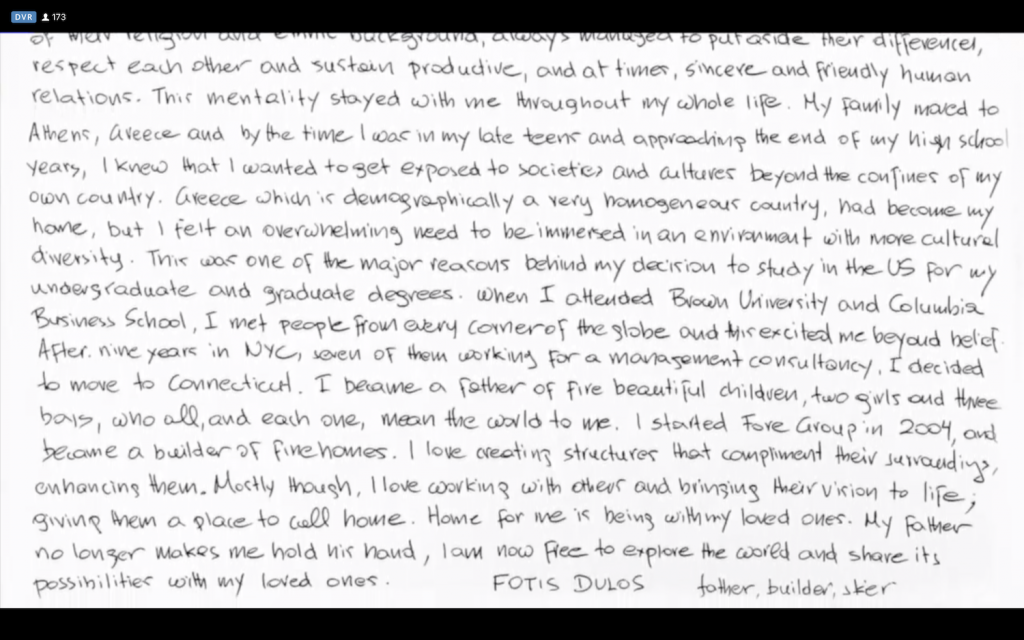 DVR 173
of their religion and ethnic background, always managed to put aside their differences,
respect each other and sustain productive, and at times, sincere and friendly human
relations. This mentality stayed with me throughout my whole life. My family moved to
Athens, Greece and by the time I was in my late teens and approaching the end of my high school
years, I knew that I wanted to get exposed to societies and cultures beyond the confines of my
own country. Greece which is demographically a very homogeneous country, had become my
home, but I felt an overwhelming need to be immersed in an environment with more cultural
diversity. This was one of the major reasons behind my decision to study in the US for my
undergraduate and graduate degrees. When I attended Brown University and Columbia
Business School, I met people from every corner of the globe and this excited me beyond belief.
After nine years in NYC, seven of them working for a management consultancy, I decided
to move to Connecticut. I became a father of five beautiful children, two girls and three
boys, who all, and each one, mean the world to me. I started Fore Group in 2004, and
became a builder of fine homes. I love creating structures that compliment their surroundings,
enhancing them. Mostly though, I love working with others and bringing their vision to life;
giving them a place to call home. Home for me is being with my loved ones. My father
no longer makes me hold his hand, I am now free to explore the world and share its
possibilities with my loved ones. FOTIS DULOS father, builder, skier